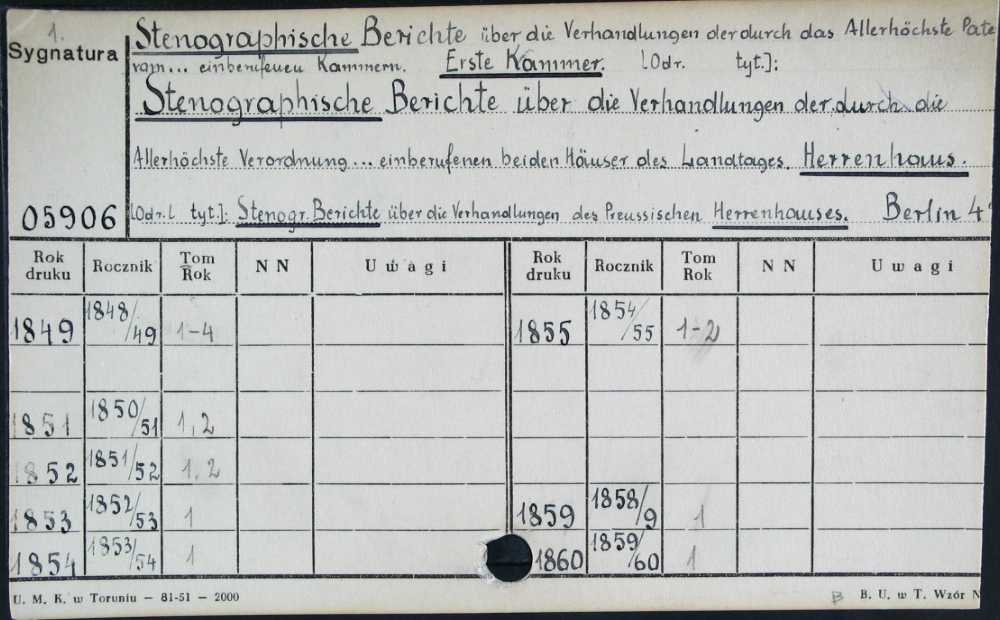 1.
Sygnatura
Stenographische Berichte über die Verhandlungen der durch das Allerhöchste Pate
vom... einberufenen Kammern. Erste Kammer. [Odr. tyt.]:
Stenographische Berichte über die Verhandlungen der durch die
Allerhöchste Verordnung... einberufenen beiden Häuser des Landtages. Herrenhaus.
05906 [Odr. tyt.]: Stenogr. Berichte über die Verhandlungen des Preussischen Herrenhauses. Berlin 4°
Rok druku Rocznik Tom Rok NN Uwagi Rok druku Rocznik Tom Rok NN Uwagi
1849 1848/49 1-4 1855 1854/55 1-2
1851 1850/51 1,2
1852 1851/52 1.2
1853 1852/53 1 1859 1858/9 1
1854 1853/54 1 1860 1859/60 1
U. M. K. w Toruniu — 81-51 — 2000 B B. U. w T. Wzór N